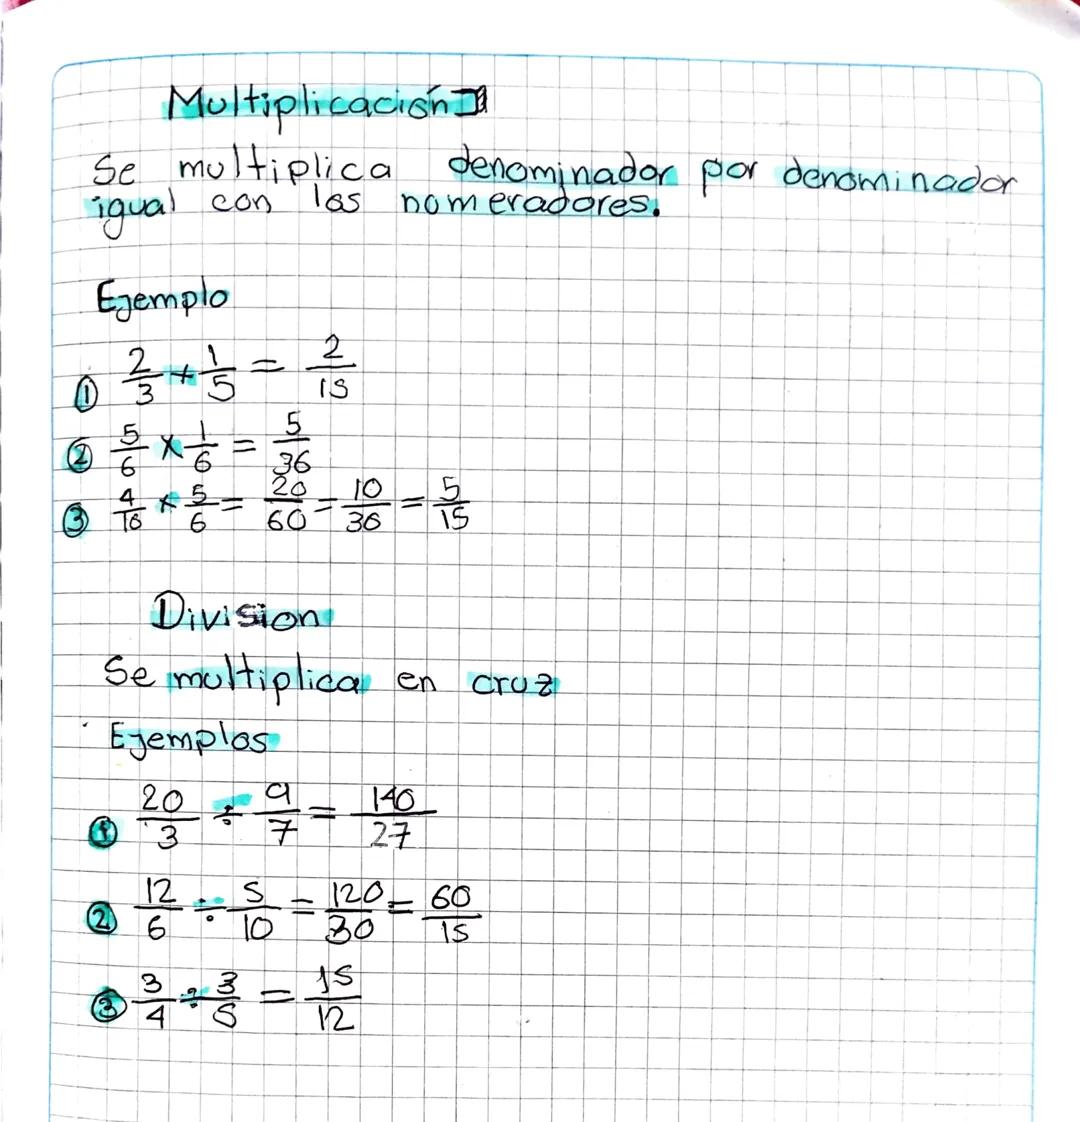 Multiplicación
Se multiplica denominador por denominador
igual con los nomeradores.
Ejemplo
① 2/3 + 1/5 = 2/15
② 5/6 x 1/6 = 5/36
③ 4/10 x 5/6 = 20/60 = 10/30 = 5/15
Division
Se multiplica en cruz
Ejemplos
① 20/3 ÷ 9/7 = 140/27
② 12/6 ÷ 5/10 = 120/30 = 60/15
③ 3/4 ÷ 3/5 = 15/12